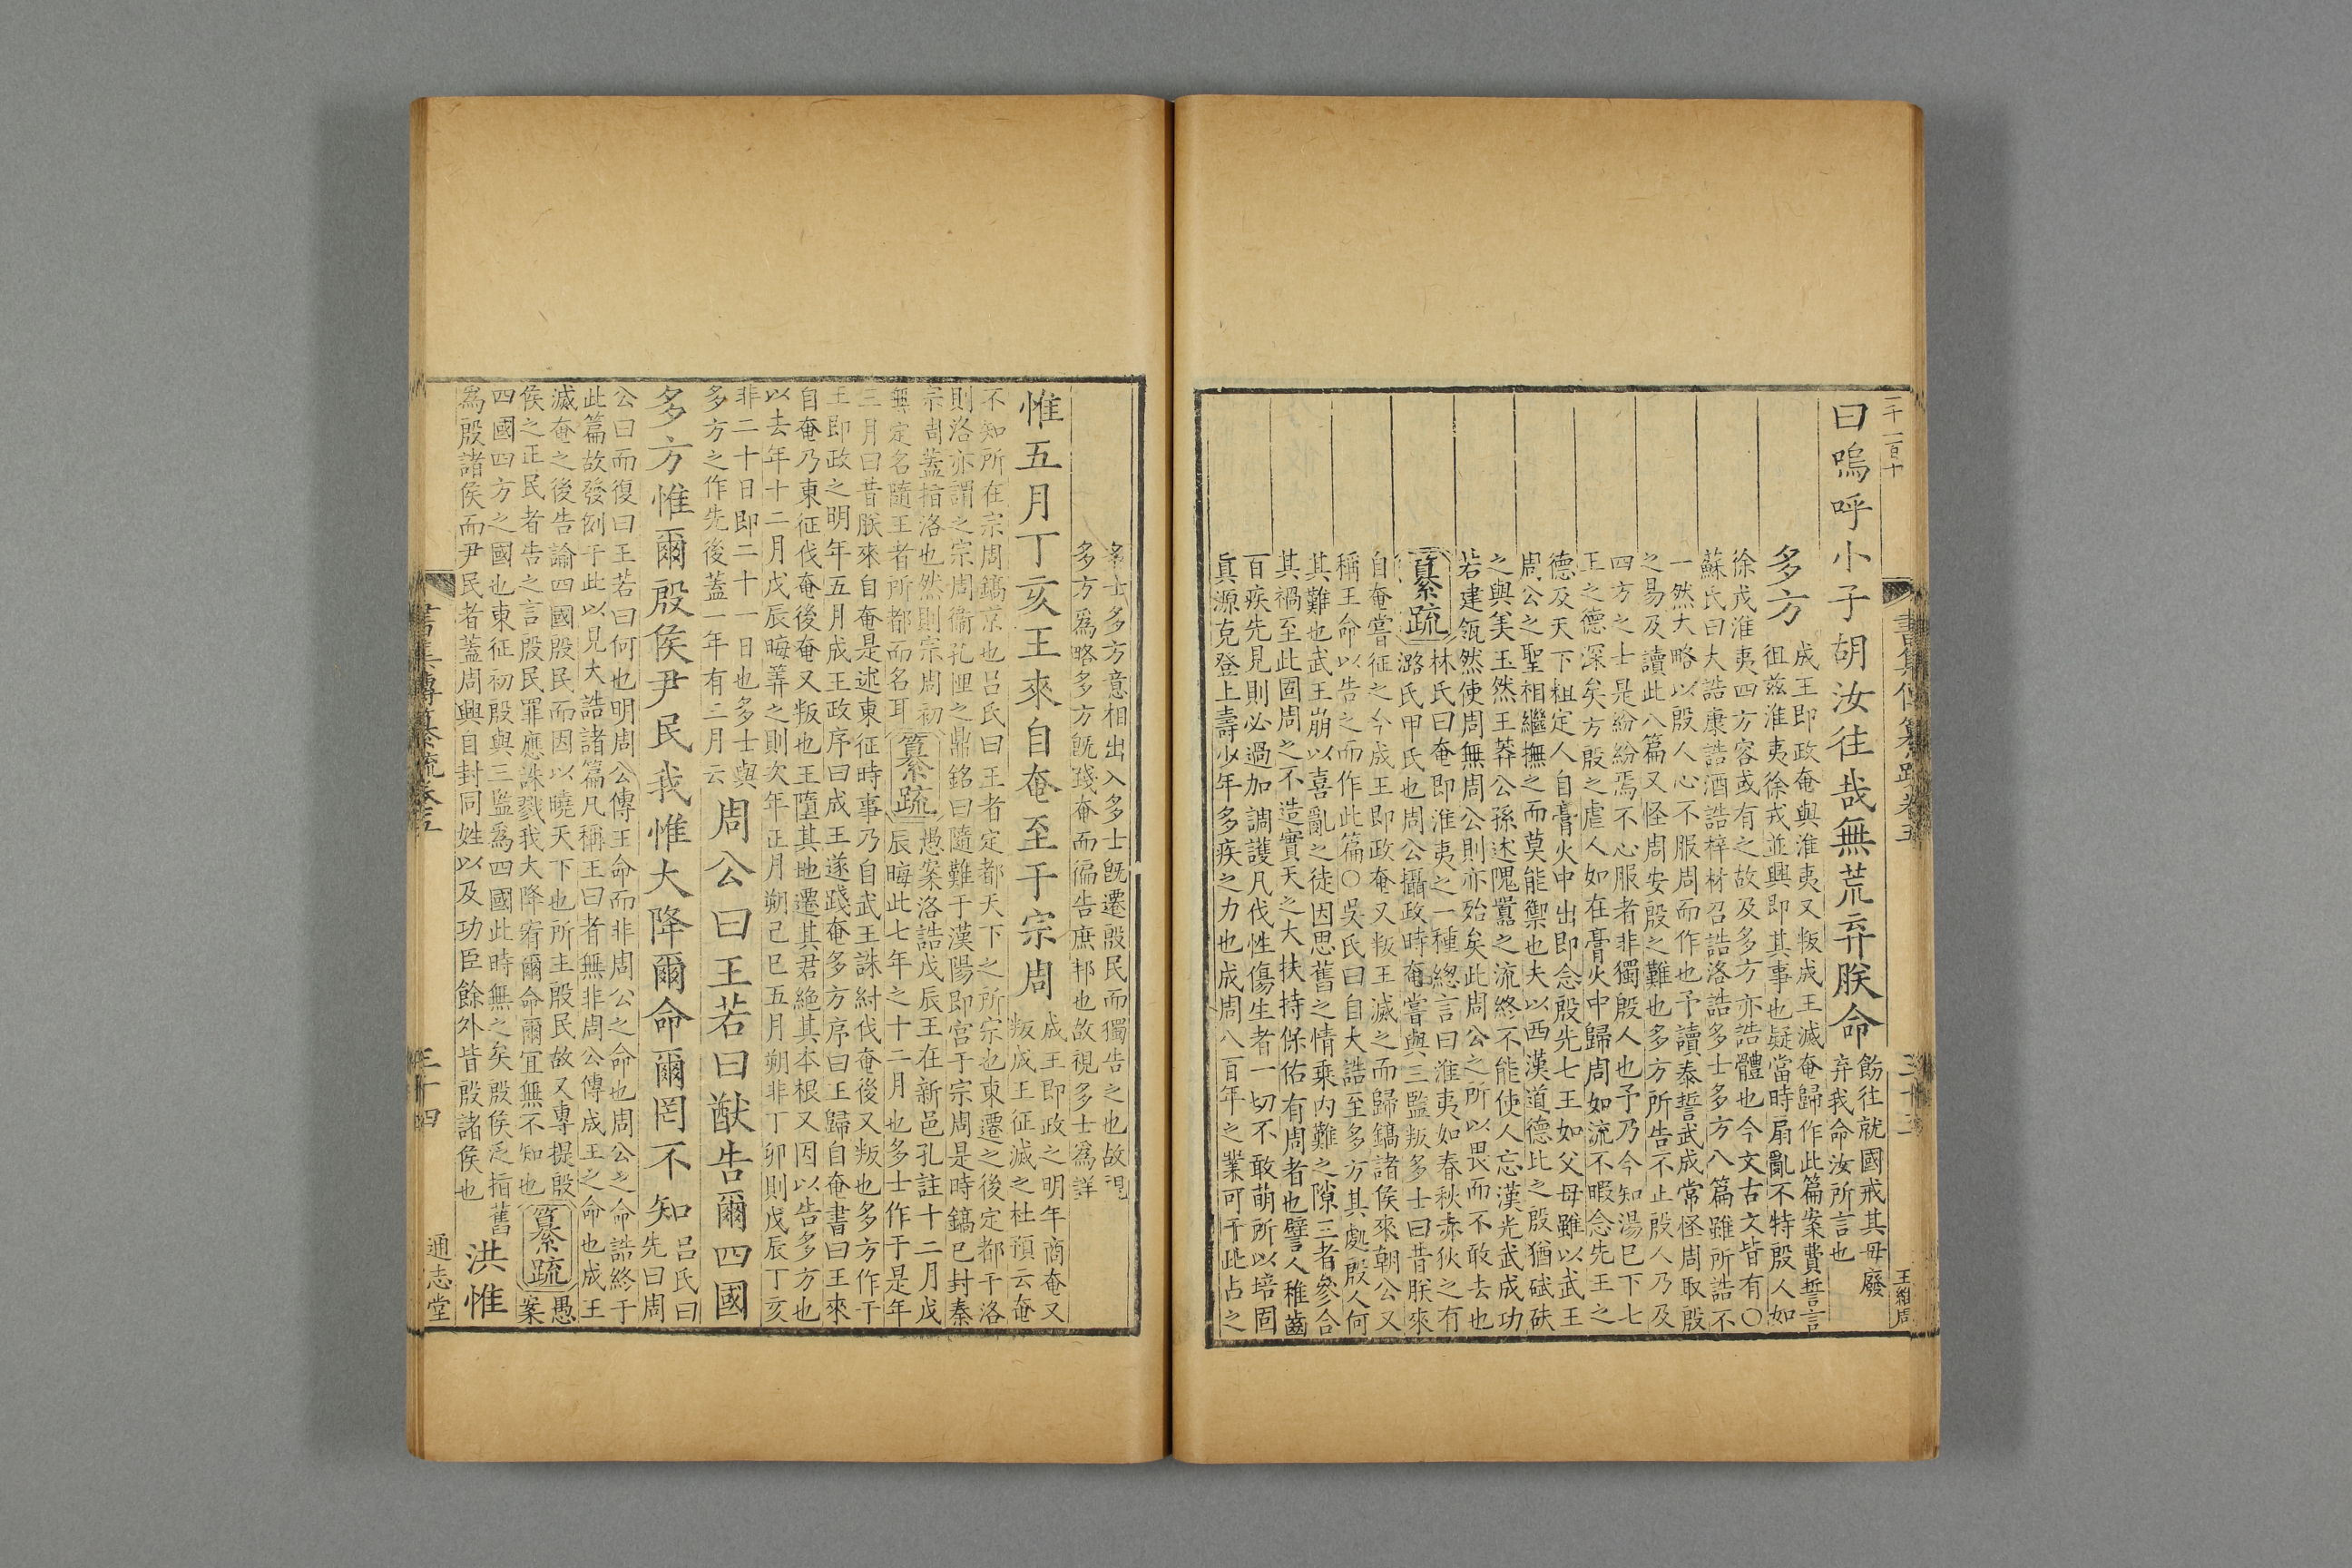 二千一百十
書集傳纂疏卷五
三十三
王維周
曰嗚呼小子胡汝往哉無荒弃朕命
飭往就國戒其毋廢
弃我命汝所言也
多方
成王即政奄與淮夷又叛成王滅奄歸作此篇案費誓言
徂茲淮夷徐戎並興即其事也疑當時扇亂不特殷人如
徐戎淮夷四方容或有之故及多方亦誥體也今文古文皆有〇
蘇氏曰大誥康誥酒誥梓材召誥洛誥多士多方八篇雖所誥不
一然大略以殷人心不服周而作也予讀泰誓武成常怪周取殷
之易及讀此八篇又怪周安殷之難也多方所告不止殷人乃及
四方之士是紛紛焉不心服者非獨殷人也予乃今知湯已下七
王之德深矣方殷之虐人如在膏火中歸周如流不暇念先王之
德及天下粗定人自膏火中出即念殷先七王如父母雖以武王
周公之聖相繼撫之而莫能禦也夫以西漢道德比之殷猶碔砆
之與美玉然王莽公孫述隗囂之流終不能使人忘漢光武成功
若建瓴然使周無周公則亦殆矣此周公之所以畏而不敢去也
纂疏
林氏曰奄即淮夷之一種總言曰淮夷如春秋赤狄之有
潞氏甲氏也周公攝政時奄嘗與三監叛多士曰昔朕來
自奄嘗征之今成王即政奄又叛王滅之而歸鎬諸侯來朝公又
稱王命以告之而作此篇〇吳氏曰自大誥至多方其處殷人何
其難也武王崩以喜亂之徒因思舊之情乘内難之隙三者參合
其禍至此固周之不造實天之大扶持保佑有周者也譬人稚齒
百疾先見則必過加調護凡伐性傷生者一切不敢萌所以培固
眞源克登上壽少年多疾之力也成周八百年之業可于此占之
多士多方意相出入多士旣遷殷民而獨告之也故視
多方爲略多方旣踐奄而徧告庶邦也故視多士爲詳
惟五月丁亥王來自奄至于宗周
成王即政之明年商奄又
叛成王征滅之杜預云奄
不知所在宗周鎬京也呂氏曰王者定都天下之所宗也東遷之後定都于洛
則洛亦謂之宗周衞孔悝之鼎銘曰隨難于漢陽即宮于宗周是時鎬已封秦
宗周蓋指洛也然則宗周初
無定名隨王者所都而名耳
纂疏
愚案洛誥戊辰王在新邑孔註十二月戊
辰晦此七年之十二月也多士作于是年
三月曰昔朕來自奄是述東征時事乃自武王誅紂伐奄後又叛也多方作于
王即政之明年五月成王政序曰成王遂踐奄多方序曰王歸自奄書曰王來
自奄乃東征伐奄後奄又叛也王墮其地遷其君絶其本根又因以告多方也
以去年十二月戊辰晦筭之則次年正月朔己巳五月朔非丁卯則戊辰丁亥
非二十日即二十一日也多士與
多方之作先後蓋一年有二月云
周公曰王若曰猷告爾四國
多方惟爾殷侯尹民我惟大降爾命爾罔不知
呂氏曰
先曰周
公曰而復曰王若曰何也明周公傳王命而非周公之命也周公之命誥終于
此篇故發例于此以見大誥諸篇凡稱王曰者無非周公傳成王之命也成王
滅奄之後告諭四國殷民而因以曉天下也所主殷民故又專提殷
侯之正民者告之言殷民罪應誅戮我大降宥爾命爾宜無不知也
纂疏
愚
案
四國四方之國也東征初殷與三監爲四國此時無之矣殷侯乏指舊
爲殷諸侯而尹民者蓋周興自封同姓以及功臣餘外皆殷諸侯也
洪惟
書集傳纂疏卷五
三十四
通志堂